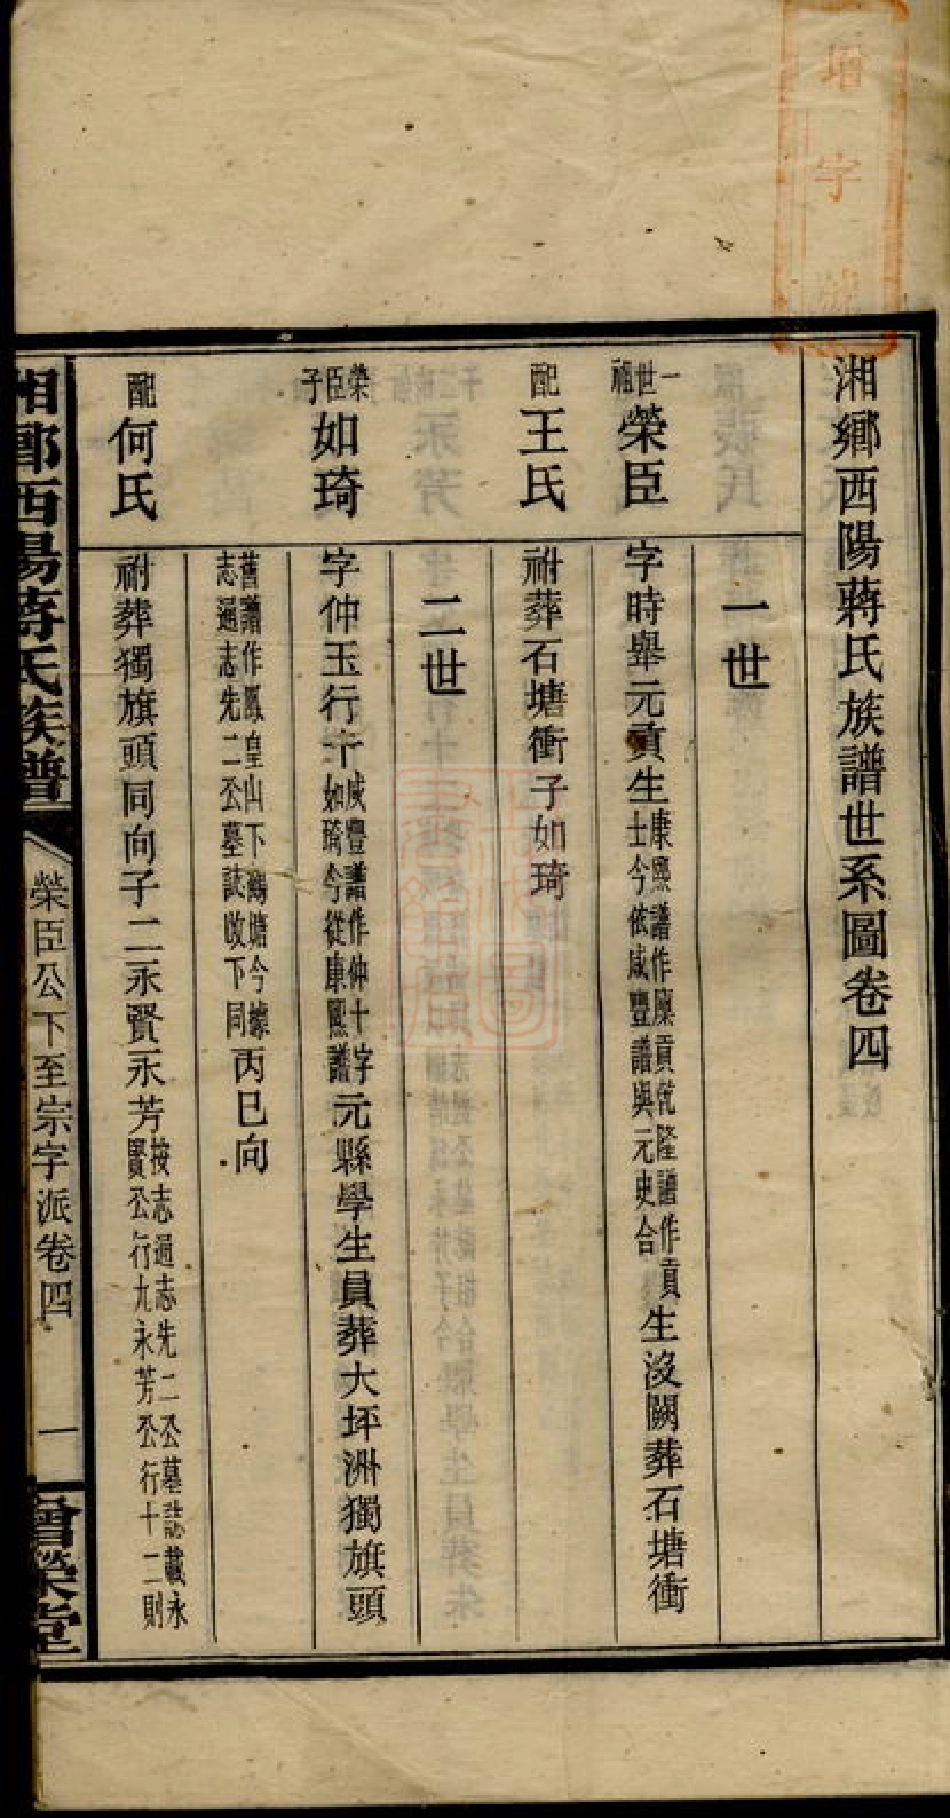 增字號
湘鄉西陽蔣氏族譜世系圖卷四
一世
一世祖
榮臣
字時舉元貢生
康熙譜作廩貢乾隆譜作貢
士今依咸豐譜與元史合
生沒闕葬石塘衝
配王氏
祔葬石塘衝子如琦
二世
榮臣子
如琦
字仲玉行十
咸豐譜作仲十字
如琦今從康熙譜
元縣學生員葬大坪洲獨旗頭
舊譜作鳳皇山下鵝塘今據
志過志先二公墓誌收下同
丙巳向
配何氏
祔葬獨旗頭同向子二永賢永芳
按志過志先二公墓誌載永
賢公行九永芳公行十二則
湘鄉西陽蔣氏族譜
榮臣公下至宗字派卷四
一
曾榮堂